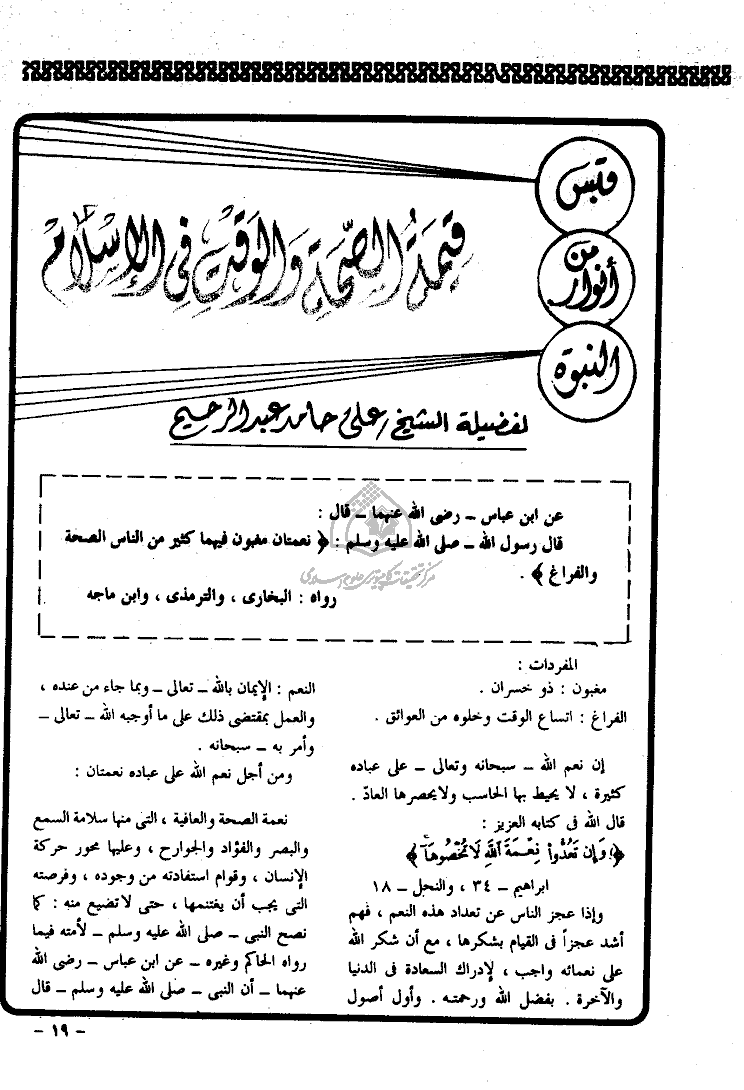 قبس
من
أنوار
النبوة
قيمة الصحة والوقت في الإسلام
لفضيلة الشيخ / على حامد عبد الرحيم
عن ابن عباس ـ رضى الله عنهما ـ قال :
قال رسول الله ـ صلى الله عليه وسلم ـ : ﴿ نعمتان مغبون فيهما كثير من الناس الصحة
والفراغ ﴾ .
رواه : البخارى ، والترمذى ، وابن ماجه
مركز تحقيقات كامپيوترى علوم اسلامى
المفردات :
مغبون : ذو خسران .
الفراغ : اتساع الوقت وخلوه من العوائق .
إن نعم الله ـ سبحانه وتعالى ـ على عباده
كثيرة ، لا يحيط بها الحاسب ولايحصرها العادّ .
قال الله فى كتابه العزيز :
﴿ وَإِن تَعُدُّواْ نِعْمَةَ اللَّهِ لَا تُحْصُوهَا ﴾
ابراهيم ـ ٣٤ ، والنحل ـ ١٨
وإذا عجز الناس عن تعداد هذه النعم ، فهم
أشد عجزاً فى القيام بشكرها ، مع أن شكر الله
على نعمائه واجب ، لإدراك السعادة فى الدنيا
والآخرة . بفضل الله ورحمته . وأول أصول
النعم : الإيمان بالله ـ تعالى ـ وبما جاء من عنده ،
والعمل بمقتضى ذلك على ما أوجبه الله ـ تعالى ـ
وأمر به ـ سبحانه .
ومن أجل نعم الله على عباده نعمتان :
نعمة الصحة والعافية ، التى منها سلامة السمع
والبصر والفؤاد والجوارح ، وعليها محور حركة
الإنسان ، وقوام استفادته من وجوده ، وفرصته
التى يجب أن يغتنمها ، حتى لاتضيع منه : كما
نصح النبى ـ صلى الله عليه وسلم ـ لأمته فيما
رواه الحاكم وغيره ـ عن ابن عباس ـ رضى الله
عنهما ـ أن النبى ـ صلى الله عليه وسلم ـ قال
- ١٩ -